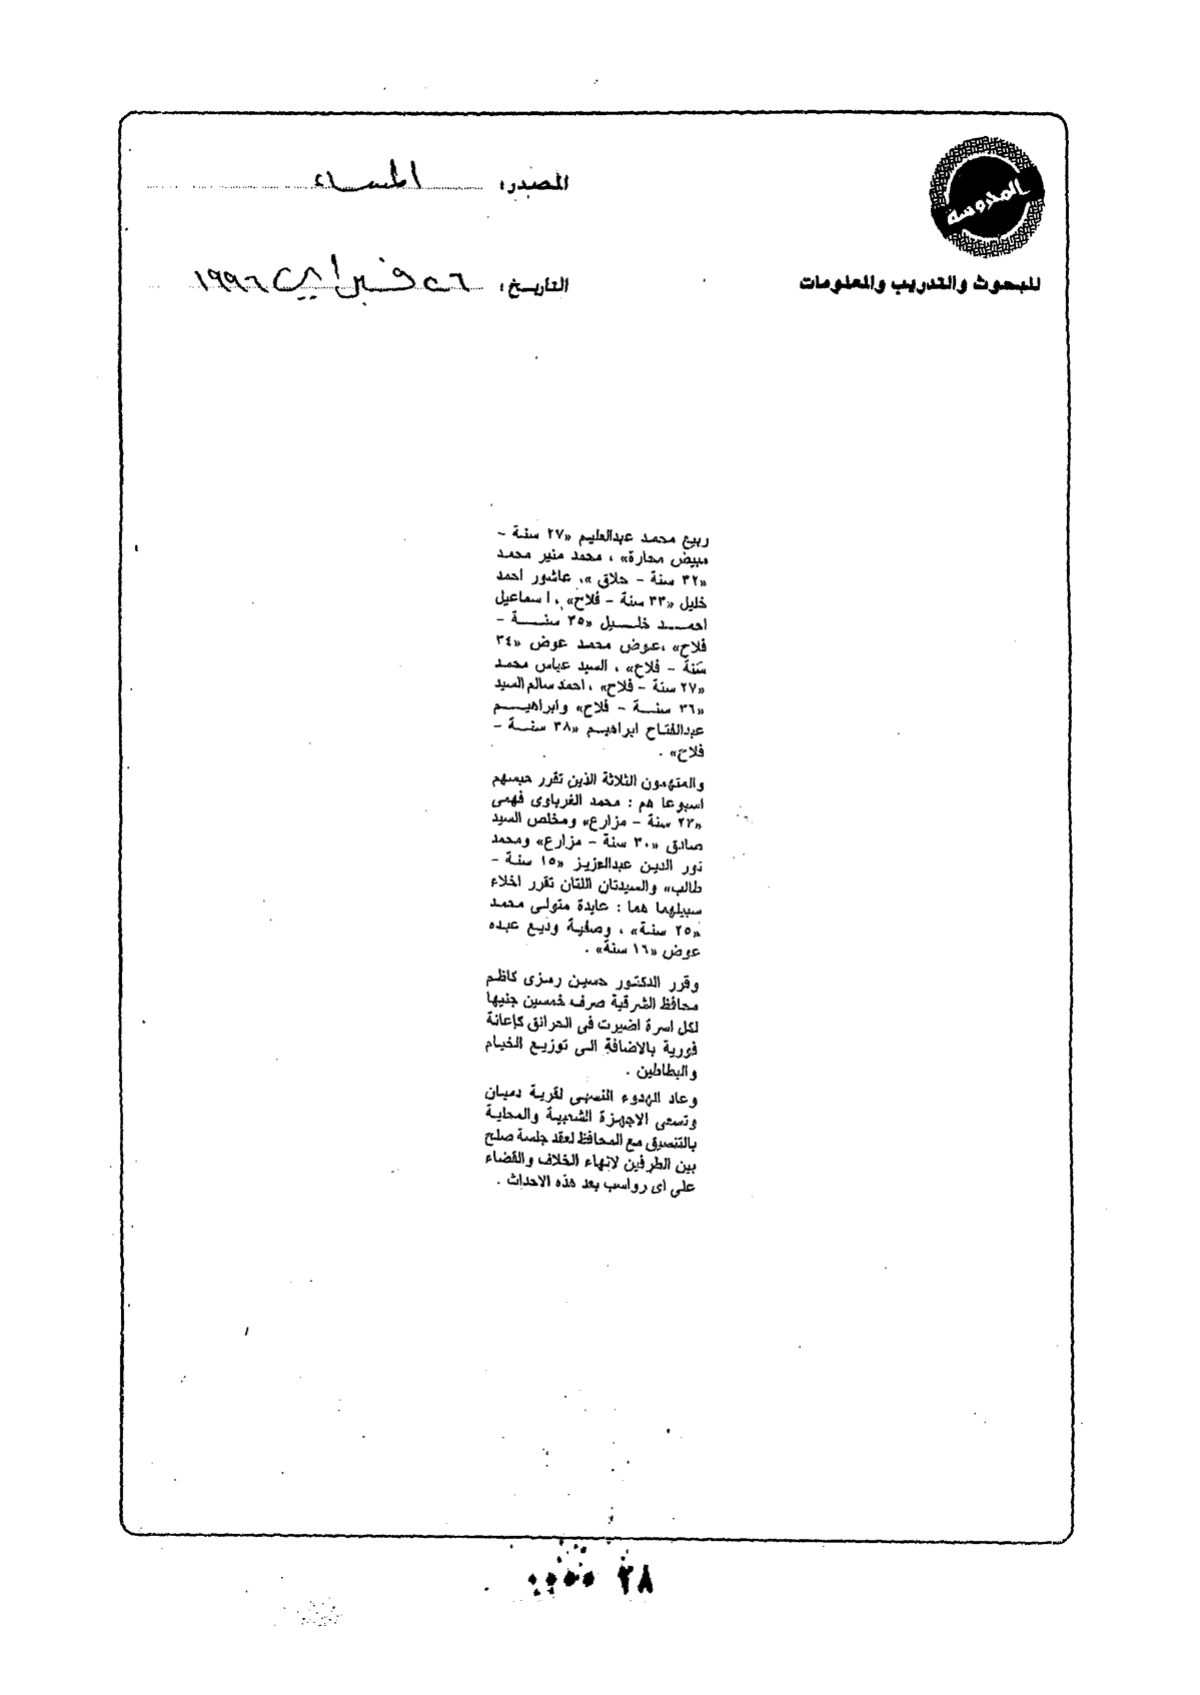 المحروسة
للبحوث والتدريب والمعلومات
المصدر: المساء
التاريخ: ٢٦ فبراير ١٩٩٦
ربيع محمد عبدالعليم «٢٧ سنة -
مبيض محارة» ، محمد منير محمد
«٣٢ سنة - حلاق »، عاشور احمد
خليل «٣٣ سنة - فلاح» ، اسماعيل
احمد خليل «٣٥ سنة -
فلاح» ،عوض محمد عوض «٣٤
سنة - فلاح» ، السيد عباس محمد
«٢٧ سنة - فلاح» ، احمد سالم السيد
«٣٦ سنة - فلاح» وابراهيم
عبدالفتاح ابراهيم «٣٨ سنة -
فلاح» .
والمتهمون الثلاثة الذين تقرر حبسهم
اسبوعا هم : محمد الغرباوى فهمى
«٢٣ سنة - مزارع» ومخلص السيد
صادق «٣٠ سنة - مزارع» ومحمد
نور الدين عبدالعزيز «١٥ سنة -
طالب» والسيدتان اللتان تقرر اخلاء
سبيلهما هما : عايدة متولى محمد
«٢٥ سنة» ، وصفية وديع عبده
عوض «١٦ سنة» .
وقرر الدكتور حسين رمزى كاظم
محافظ الشرقية صرف خمسين جنيها
لكل اسرة اضيرت فى الحرائق كإعانة
فورية بالاضافة الى توزيع الخيام
والبطاطين .
وعاد الهدوء النسبى لقرية دميان
وتسعى الاجهزة الشعبية والمحلية
بالتنسيق مع المحافظ لعقد جلسة صلح
بين الطرفين لانهاء الخلاف والقضاء
على اى رواسب بعد هذه الاحداث .
٢٨